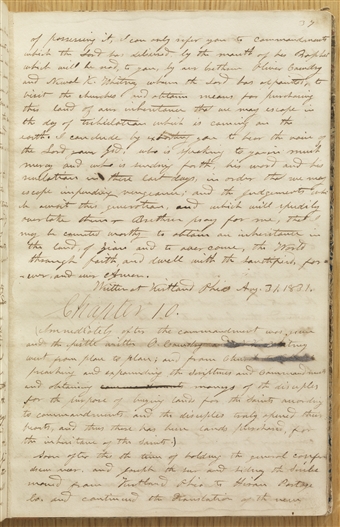 37
of possessing it. I can only refer you to commandments
which the Lord has delivered by the mouth of his Prophet
which will be read to you by our brethren Oliver Cowdery
and Newel K. Whitney whom the Lord has appointed to
visit the churches and obtain means for purchasing
this land of our inheritance that we may escape in
the day of tribulation which is coming on the
earth. I conclude by exhorting you to hear the voice of
the Lord your God, who is speaking to you in much
mercy and who is sending forth his word and his
revelation in these last days, in order that we may
escape impending vengeance; and the judgements which
await this generation, and which will speedily
overtake them Brethren pray for me, that I
may be counted worthy to obtain an inheritance in
the land of Zion and to overcome the World
through faith, and dwell with the sanctified, for-
ever and ever Amen.
Written at Kirtland Ohio Aug. 31, 1831.
Chapter 10.
(Immediately after the commandment was given
and the written O. Cowdery
went from place to place; and from
preaching and expounding the scriptures and commandments
and obtaining moneys of the disciples
for the purpose of buying lands for the Saints according
to commandments and the disciples truly opened their
hearts, and thus there has been lands purchased, for
the inheritance of the Saints.)
Soon after the time of holding the general
Joseph
moved from Kirtland Ohio to Hiram Portage
Co. and continued the translation of the new